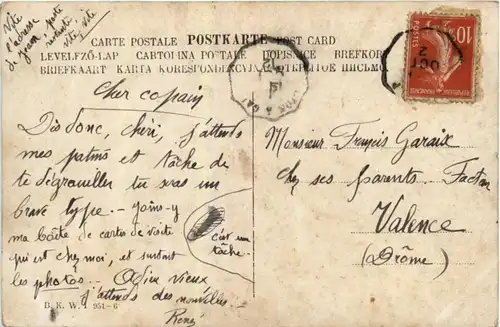 Vite
l'adresse
de Jean poste
restante
vite, vite
CARTE POSTALE POSTKARTE POST CARD
LEVELEZŐ-LAP CARTOLINA POSTALE DOPISNICE BREFKORT
BRIEFKAART KARTA KORESPONDENCYJNA ОТКРЫТОЕ ПИСЬМО
POSTES
10
REPUBLIQUE FRANÇAISE
OCT
2
Cher copain
Dis donc, chéri, j'attends
mes patins et tâche de
te dégrouiller tu seras un
brave type. - Joins-y
ma boîte de cartes de visite
qui est chez moi, et surtout
les photos... Adieu vieux
j'attends des nouvelles
René
c'est une
tâche.
Monsieur Françis Garaix
chez ses parents
Valence
(Drôme)
B. K. W. I. 951-6